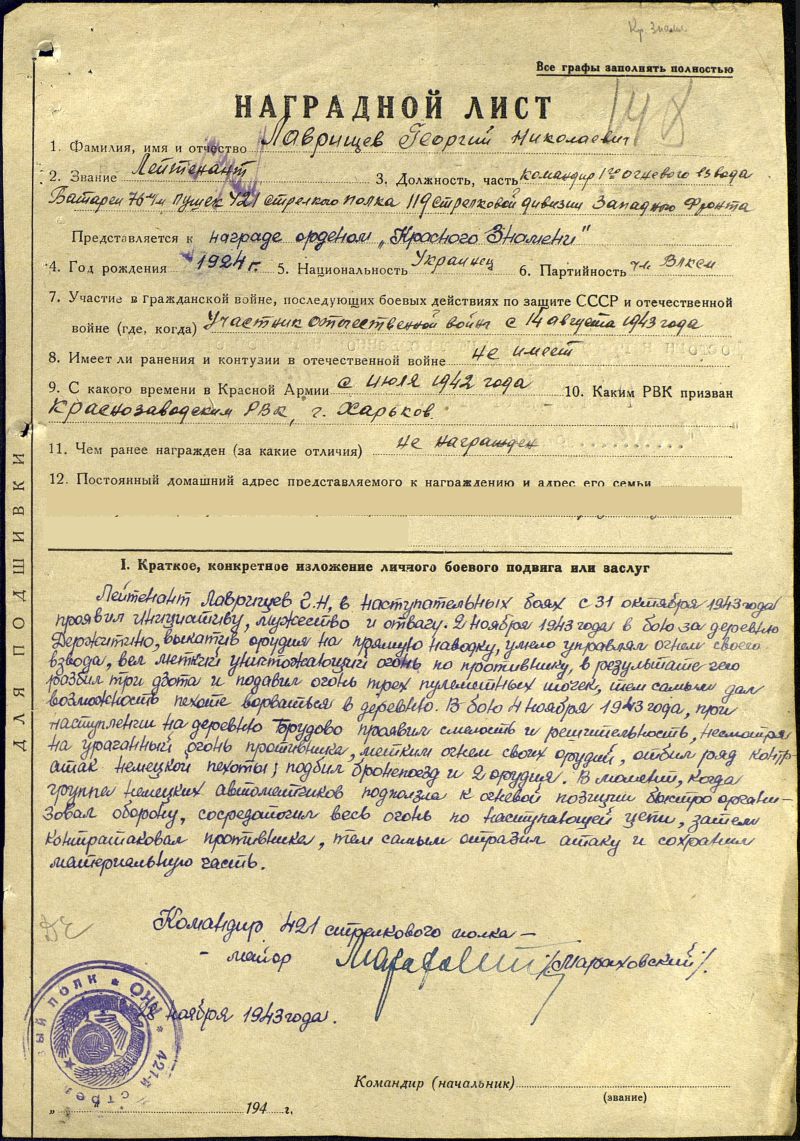 Кр. Знамя
Все графы заполнять полностью
148
НАГРАДНОЙ ЛИСТ
1. Фамилия, имя и отчество Лаврищев Георгий Николаевич
2. Звание Лейтенант 3. Должность, часть командир 1го огневого взвода
Батареи 76 м/м пушек 421 стрелкого полка 119 Стрелковой дивизии Западного Фронта
Представляется к награде орденом „Красного Знамени"
4. Год рождения 1924 г. 5. Национальность Украинец 6. Партийность чл. Влксм
7. Участие в гражданской войне, последующих боевых действиях по защите СССР и отечественной
войне (где, когда) Участник отечественной войны с 14 августа 1943 года
8. Имеет ли ранения и контузии в отечественной войне не имеет
9. С какого времени в Красной Армии с июля 1942 года 10. Каким РВК призван
Краснозаводским РВК, г. Харьков
11. Чем ранее награжден (за какие отличия) не награжден
12. Постоянный домашний адрес представляемого к награждению и адрес его семьи
ДЛЯ ПОДШИВКИ
I. Краткое, конкретное изложение личного боевого подвига или заслуг
Лейтенант Лаврищев Г.Н, в наступательных боях с 31 октября 1943 года
проявил инициативу, мужество и отвагу. 2 ноября 1943 года в бою за деревню
Держитино, выкатив орудия на прямую наводку, умело управлял огнем своего
взвода, вел меткий уничтожающий огонь по противнику, в результате чего
разбил три дзота и подавил огонь трех пулеметных точек, тем самым дал
возможность пехоте ворваться в деревню. В бою 4 ноября 1943 года, при
наступлении на деревню Борудово проявил смелость и решительность, несмотря
на ураганный огонь противника, метким огнем своих орудий, отбил ряд контр-
атак немецкой пехоты; подбил бронепоезд и 2 орудия. В момент, когда
группа немецких автоматчиков подползла к огневой позиции быстро органи-
зовал оборону, сосредоточил весь огонь по наступающей цепи, затем
контратаковал противника, тем самым отразил атаку и сохранил
материальную часть.
Командир 421 стрелкового полка –
– майор /Мараховский/.
28 ноября 1943 года.
421-й
Командир (начальник)
(звание)
„ 194 г.